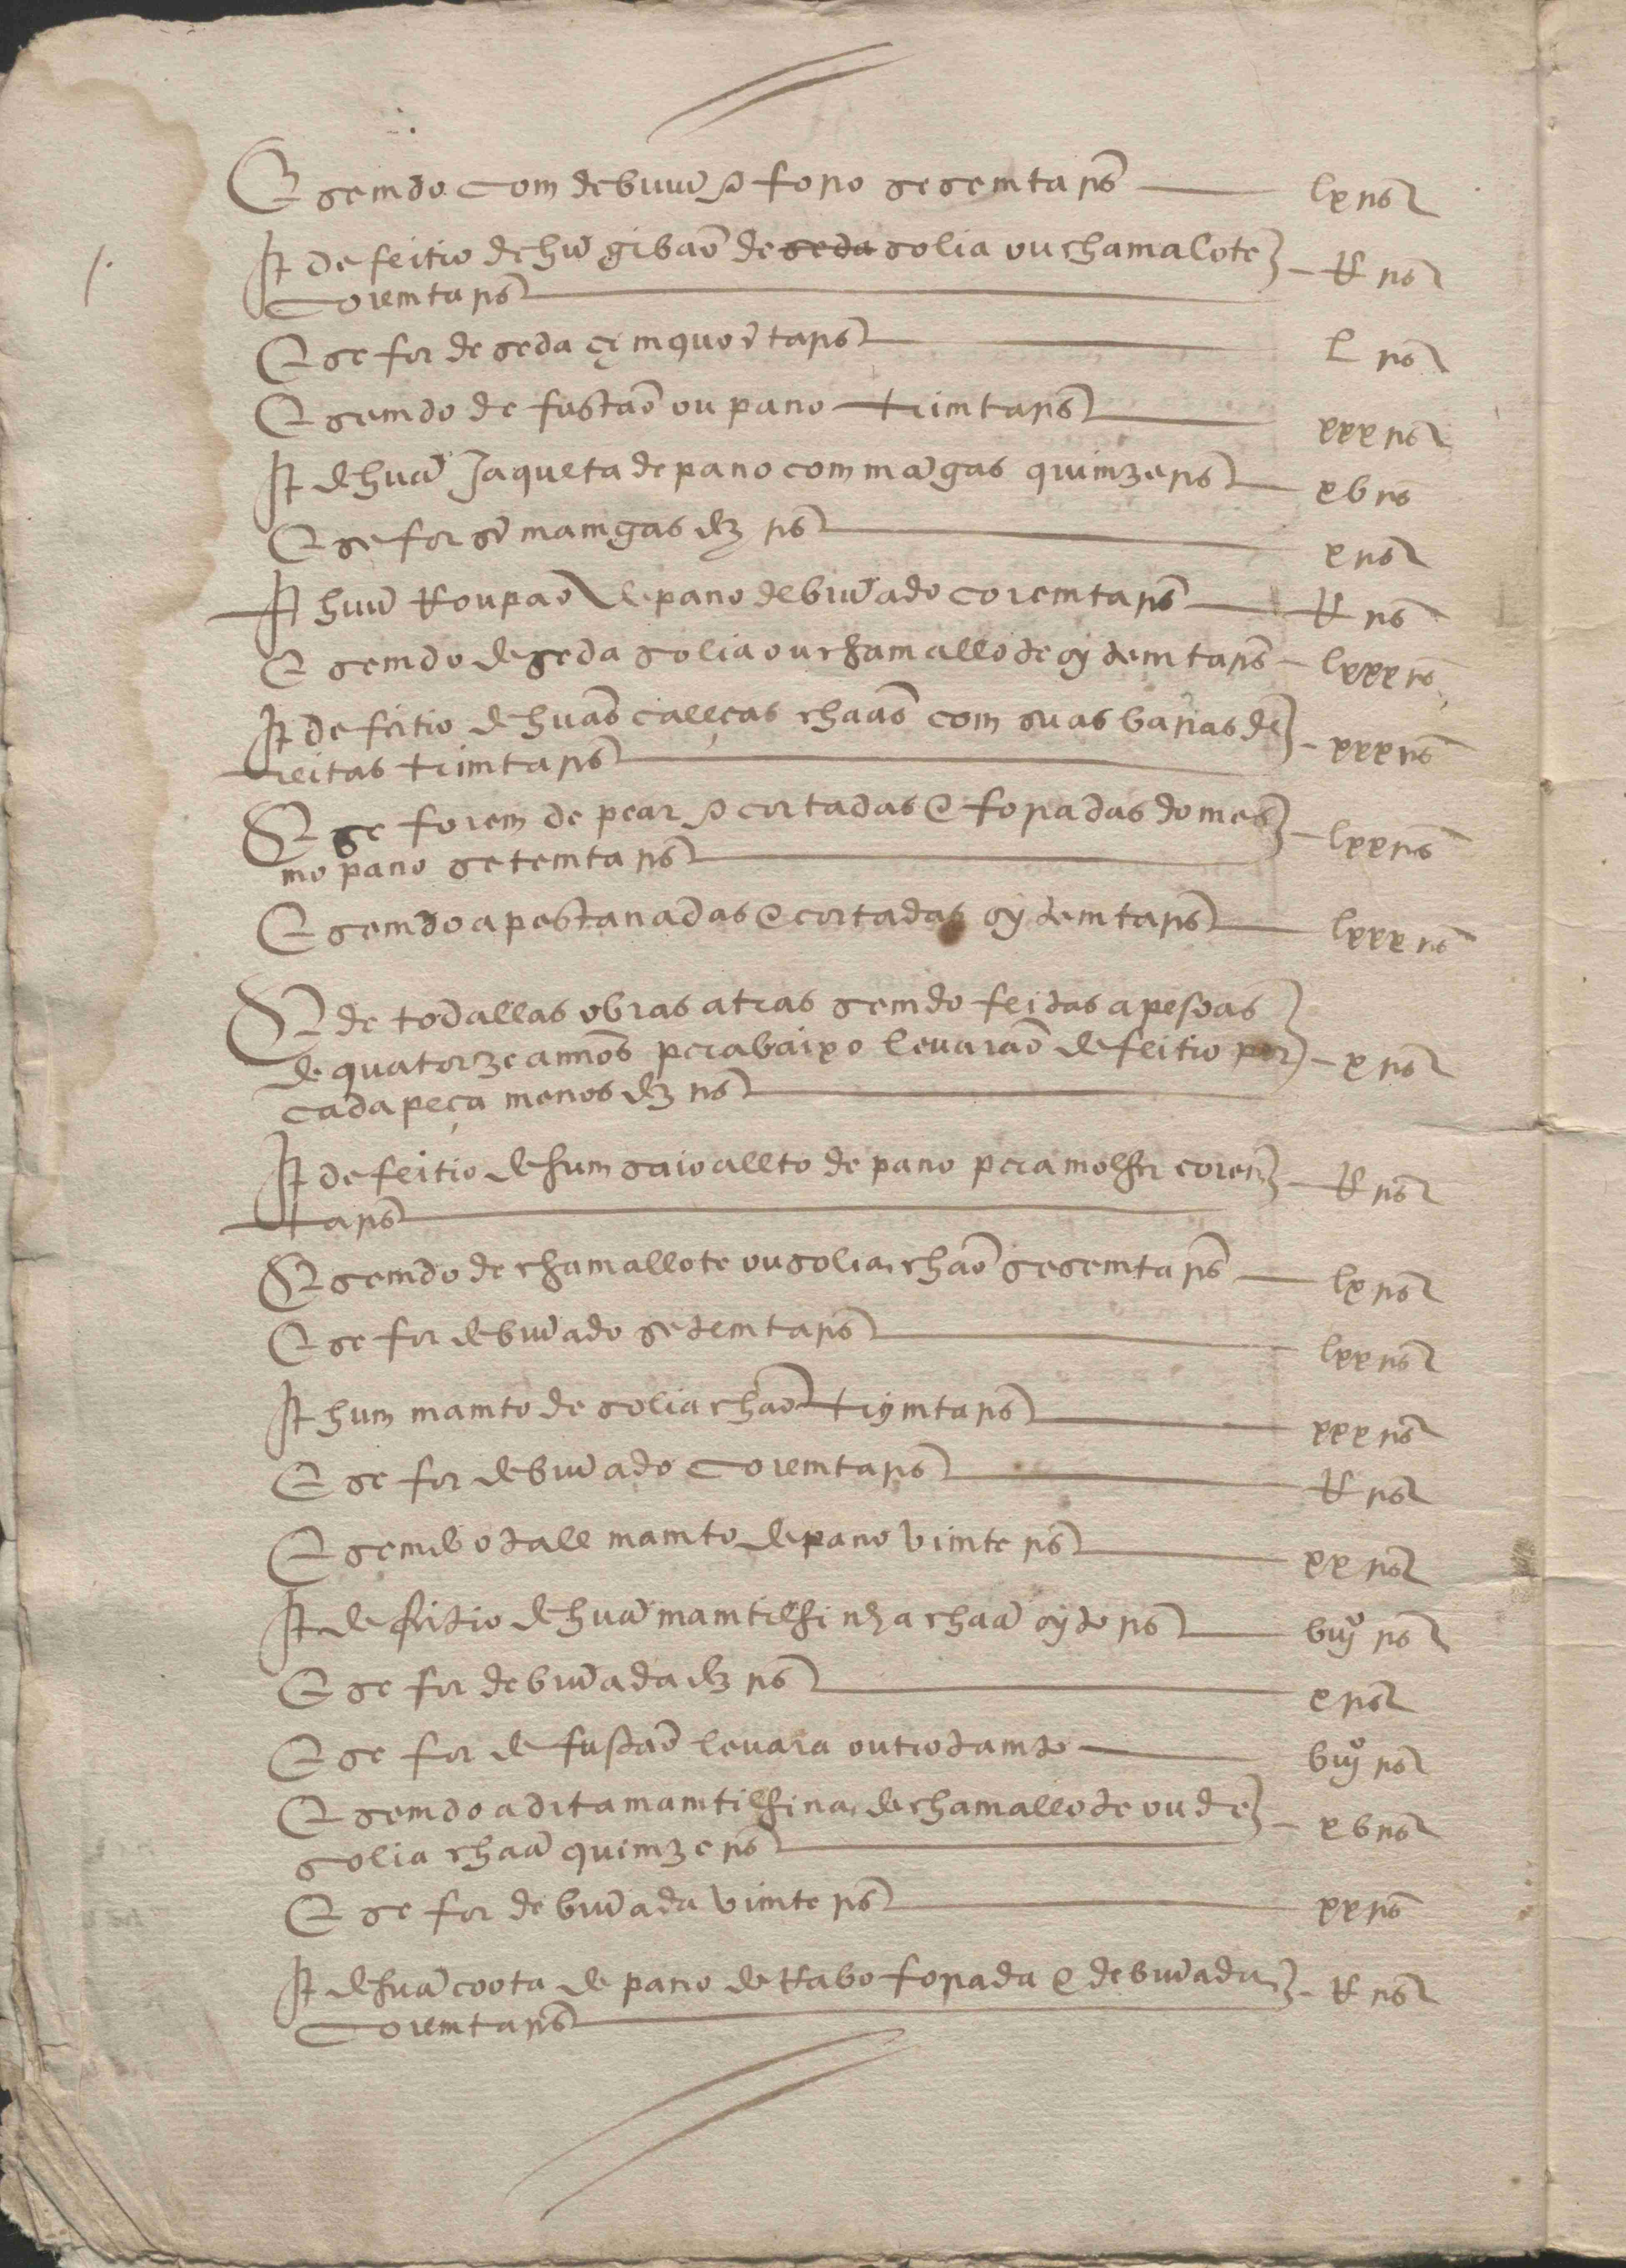 E semdo com debuũ e foro sesemta rs̃ — lx rs̃
It de feitio de hũ gibaõ de seda solia ou chamalote — R rs̃
coremta rs̃
E se for de seda çimquoẽta rs̃ — l rs̃
E semdo de fustaõ ou pano trimta rs̃ — xxx rs̃
It de huã Jaqueta de pano com mãgas quimze rs̃ — xb rs̃
E se for sẽ mamgas dez rs̃ — x rs̃
It huũ Roupaõ de pano debruado coremta rs̃ — R rs̃
E semdo de seda solia ou chamallote oytemta rs̃ — lxxx rs̃
It de feitio de huãs callças chaãs com suas baras de — xxx rs̃
reitas trimta rs̃
E se forem de pear e cortadas e foradas do mes — lxx rs̃
mo pano setemta rs̃
E semdo apestanadas e cortadas oytemta rs̃ — lxxx rs̃
E de todallas obras atras semdo feitas a pesoas
de quatorze annos pera baixo levaraõ de feitio por — x rs̃
cada peça menos dez rs̃
It de feitio de hum saio allto de pano pera molher corem — R rs̃
ta rs̃
E semdo de chamallote ou solia chaõ sesemta rs̃ — lx rs̃
E se for debruado setemta rs̃ — lxx rs̃
It hum mamto de solia chaõ triymta rs̃ — xxx rs̃
E se for debruado coremta rs̃ — R rs̃
E semdo o tall mamto de pano vimte rs̃ — xx rs̃
It de feitio de huã mamtilhinha chaã oyto rs̃ — biijº rs̃
E se for debruada dez rs̃ — x rs̃
E se for de fustaõ levara outro tamto — biijº rs̃
E semdo a dita mamtilhina de chamallote ou de — xb rs̃
solia chaã quimze rs̃
E se for debruada vimte rs̃ — xx rs̃
It de huã coota de pano de Rabo forada e debruada — R rs̃
coremta rs̃